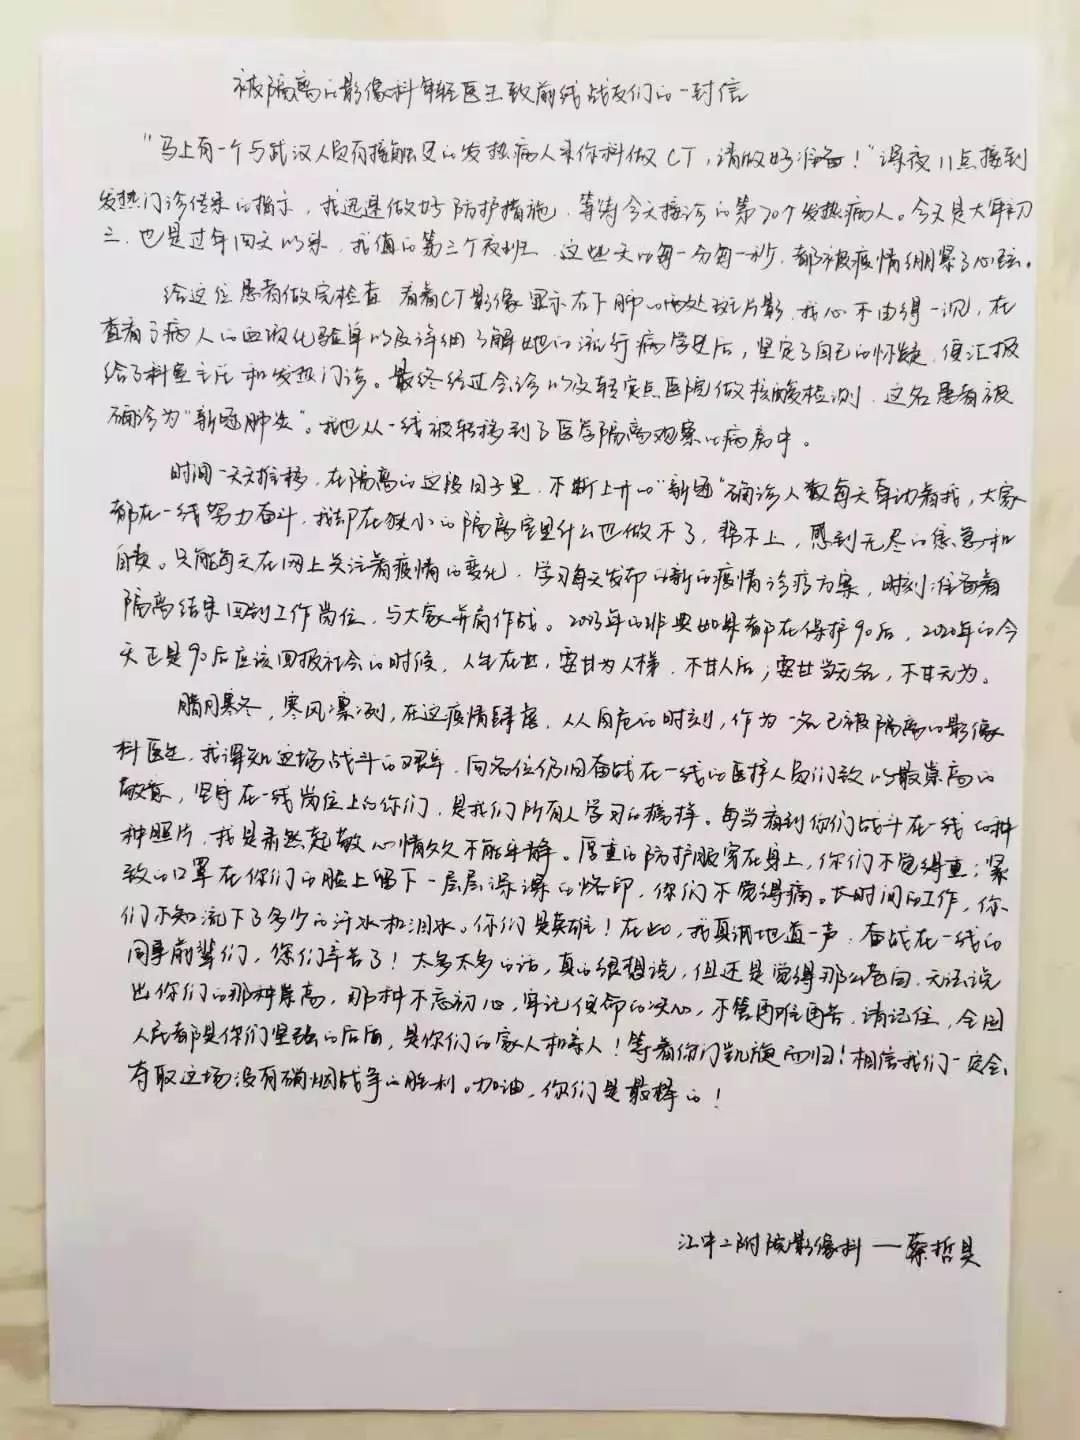 被隔离的影像科年轻医生致前线战友们的一封信
"马上有一个与武汉人员有接触史的发热病人来你科做CT,请做好准备!"深夜11点接到
发热门诊传来的指示,我迅速做好防护措施,等待今天接诊的第20个发热病人。今天是大年初
三,也是过年四天以来,我值的第三个夜班,这些天的每一分每一秒,都被疫情绷紧了心弦。
给这位患者做完检查,看着CT影像显示右下肺的两处斑片影,我心不由得一沉,在
查看了病人的血液化验单以及详细了解她的流行病学史后,坚定了自己的怀疑,便汇报
给了科室主任和发热门诊。最终经过会诊以及转定点医院做核酸检测,这名患者被
确诊为"新冠肺炎"。我也从一线被转移到了医学隔离观察的病房中。
时间一天天推移,在隔离的这段日子里,不断上升的"新冠"确诊人数每天牵动着我,大家
都在一线努力奋斗,我却在狭小的隔离室里什么也做不了,帮不上,感到无尽的焦急和
自责。只能每天在网上关注着疫情的变化,学习每天发布的新的疫情诊疗方案,时刻准备着
隔离结束回到工作岗位,与大家并肩作战。2003年的非典如果都在保护90后,2020年的今
天正是90后应该回报社会的时候,人生在世,要甘为人梯,不甘人后;要甘当无名,不甘无为。
腊月寒冬,寒风凛冽,在这疫情肆虐,人人自危的时刻,作为一名已被隔离的影像
科医生,我深知这场战斗的艰辛,向各位仍旧奋战在一线的医护人员们致以最崇高的
敬意,坚守在一线岗位上的你们,是我们所有人学习的榜样。每当看到你们战斗在一线的种
种照片,我是肃然起敬,心情久久不能平静。厚重的防护服穿在身上,你们不觉得重;紧
致的口罩在你们的脸上留下一层层深深的烙印,你们不觉得痛。长时间的工作,你
们不知流下了多少的汗水和泪水。你们是英雄!在此,我真诚地道一声,奋战在一线的
同事前辈们,你们辛苦了!太多太多的话,真的很想说,但还是觉得那么苍白,无法说
出你们的那种崇高,那种不忘初心,牢记使命的决心,不管再难再苦,请记住,全国
人民都是你们坚强的后盾,是你们的家人和亲人!等着你们凯旋而归!相信我们一定会
夺取这场没有硝烟战争的胜利。加油,你们是最棒的!
江中二附院影像科——蔡哲昊